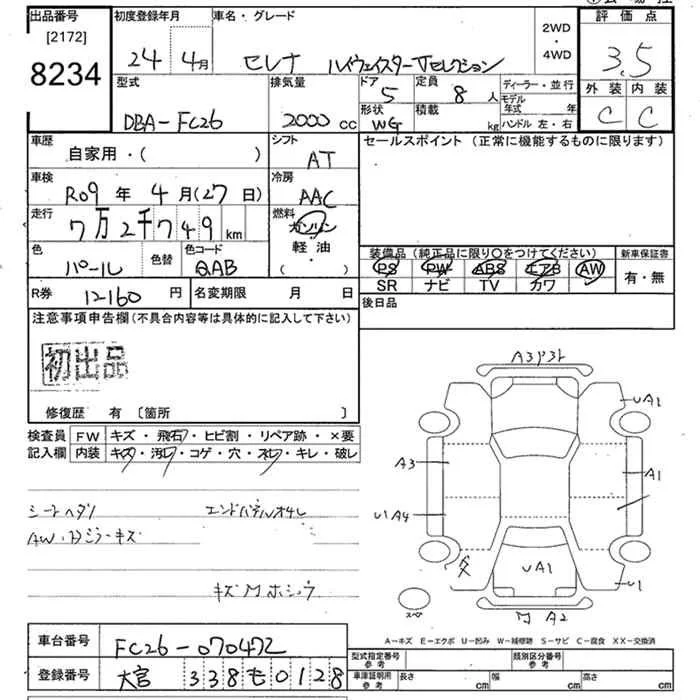 出品番号 初度登録年月 車名・グレード 2WD・4WD 評価点
[2172]
8234 24 4月 セレナ ハイウェイスターVセレクション 3.5
型式 排気量 ドア 5 定員 8人 ディーラー・並行 外装 内装
DBA-FC26 2000cc 形状 WG 積載 kg モデル年式 年 ハンドル 左・右 C C
車歴 自家用・( ) シフト AT セールスポイント (正常に機能するものに限ります)
車検 R09年 4月(27日) 冷房 AAC
走行 7万2千749km 燃料 ガソリン
軽油・( )
色 パール 色替 色コード QAB
装備品 (純正品に限り〇をつけてください) 新車保証書
PS PW ABS エアB AW 有・無
SR ナビ TV カワ
R券 12160円 名変期限 月 日 後日品
注意事項申告欄 (不具合内容等は具体的に記入して下さい)
初出品
修復歴 有 〔箇所 〕
検査員 FW キズ・飛石・ヒビ割・リペア跡・×要
記入欄 内装 キズ・汚レ・コゲ・穴・スレ・キレ・破レ
シートヘタリ
AW・Dミラーキズ
キズ
A3
UA1
A3
A1
U1 A4
UA1
U1
A2
スペ
A-キズ E-エクボ U-凹み W-補修跡 S-サビ C-腐食 XX-交換済
車台番号 FC26-070472
登録番号 大宮 338 も 0128
型式指定番号 参考 類別区分番号 参考
車庫証明用 参考 長さ cm 幅 cm 高さ cm